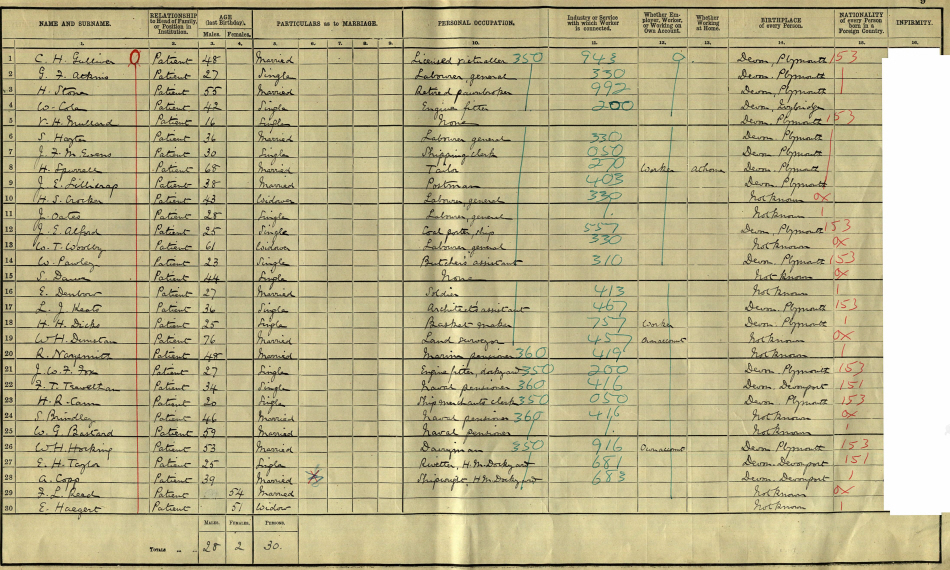 NAME AND SURNAME. RELATIONSHIP to Head of Family, or Position in Institution. AGE (last Birthday). Males. Females. PARTICULARS as to MARRIAGE. PERSONAL OCCUPATION. Industry or Service with which Worker is connected. Whether Employer, Worker, or Working on Own Account. Whether Working at Home. BIRTHPLACE of every Person. NATIONALITY of every Person born in a Foreign Country. INFIRMITY.
1. 2. 3. 4. 5. 6. 7. 8. 9. 10. 11. 12. 13. 14. 15. 16.
1 C. H. Gulliver Patient 48 Married Licensed victualler 350 943 Devon, Plymouth 153
2 G. F. Atkins Patient 27 Single Labourer, general 330 Devon, Plymouth
3 H. Stone Patient 55 Married Retired pawnbroker 992 Devon, Plymouth
4 W. Cole Patient 42 Single Engine fitter 200 Devon, Ivybridge
5 Mullard Patient 16 Single None Devon Plymouth 153
6 S. Patient 36 Married Labourer general 330 Devon, Plymouth
7 J. F. M. Evens Patient 30 Single Shipping clerk 050 Devon Plymouth
8 H. Spurrell Patient 68 Married Tailor 270 Worker at home Devon Plymouth
9 J. E. Lillicrap Patient 38 Married Postman 403 Devon Plymouth
10 H. S. Crocker Patient 43 Widower Labourer, general 330 Not known OX
11 J. Oates Patient 28 Single Labourer, general Not known
12 J. E. Alford Patient 25 Single Coal porter, ship 557 Devon, Plymouth 153
13 W. T. Woolby Patient 61 Widower Labourer general 330 Not known OX
14 W. Pawley Patient 23 Single Butcher's assistant 310 Devon Plymouth 153
15 S. Patient 44 Single None Not known OX
16 E. Denbow Patient 27 Married Soldier 413 Not known
17 L. J. Keats Patient 36 Single Architect's assistant 467 Devon Plymouth 153
18 H. H. Dicks Patient 25 Single Basket maker 757 Worker Devon, Plymouth
19 W H. Dunstan Patient 76 Married Land surveyor 457 Own account Not known OX
20 R. Patient 48 Married Marine pensioner 360 419 Not known
21 J. W. F. Fox Patient 27 Single Engine fitter, dockyard 350 200 Devon, Plymouth 153
22 F. T. Patient 34 Single Naval pensioner 360 416 Devon Devonport 151
23 H. R. Cann Patient 20 Single Ship merchants clerk 350 050 Devon, Plymouth 153
24 S. Brindley Patient 46 Married Naval pensioner 360 416 Not known OX
25 W. G. Bastard Patient 59 Married Naval pensioner Not known
26 W H. Hocking Patient 53 Married Dairyman 350 916 Own account Devon Plymouth 153
27 E. H. Taylor Patient 25 Single Rivetter, H.M. Dockyard 681 Devon, Devonport 151
28 A. Copp Patient 39 Married Shipwright, H.M. Dockyard 683 Devon, Devonport
29 F. L. Patient 54 Married Not known OX
30 E. Haegert Patient 51 Widow Not known
MALES. FEMALES. PERSONS.
TOTALS 28 2 30.